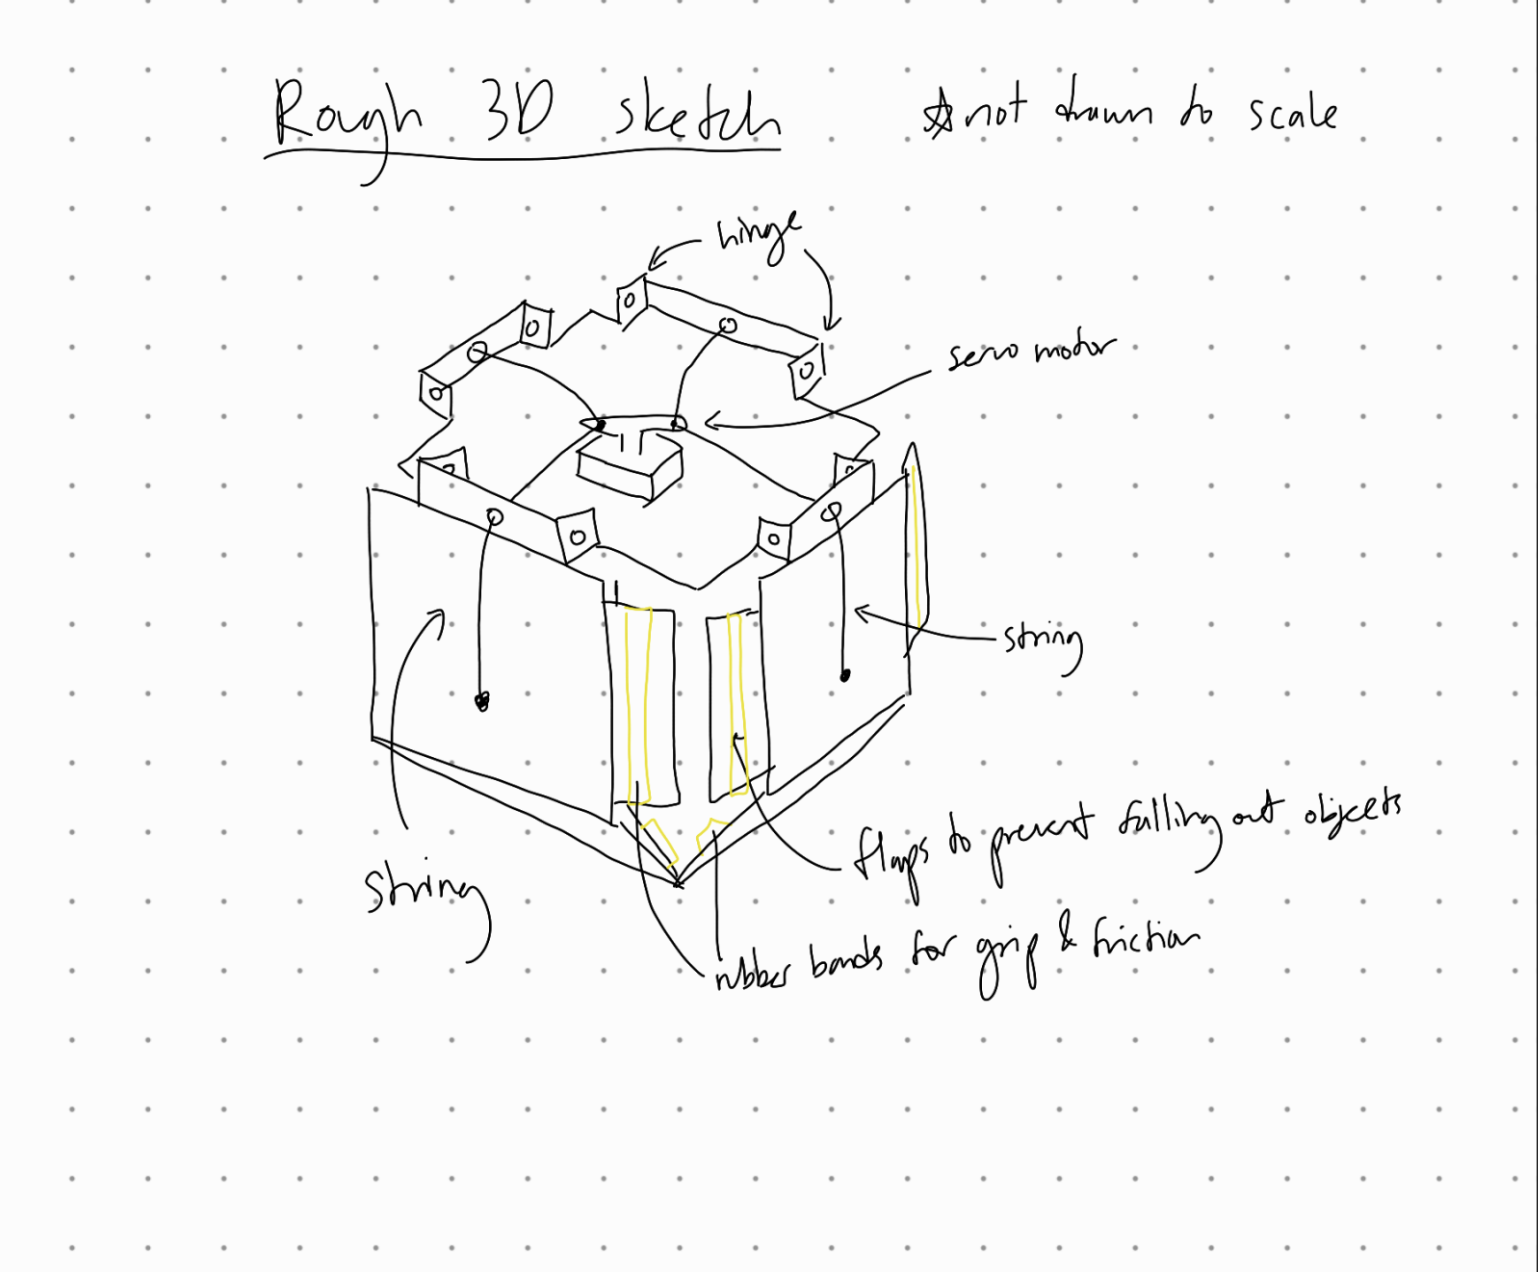 Rough 3D sketch
☆ not drawn to scale
hinge
servo motor
string
flaps to prevent falling out objects
string
rubber bands for grip & friction